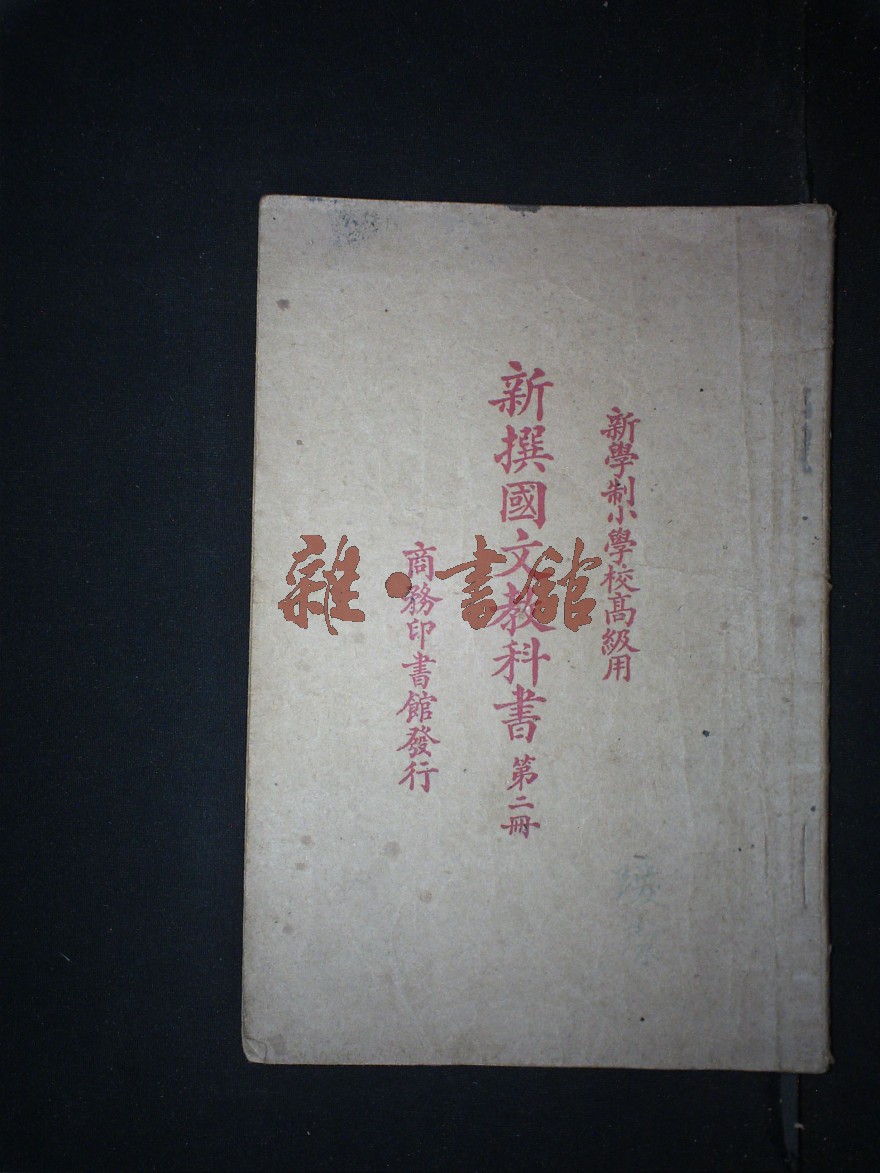 新學制小學校高級用
新撰國文教科書 第二冊
商務印書館發行
雜·書館